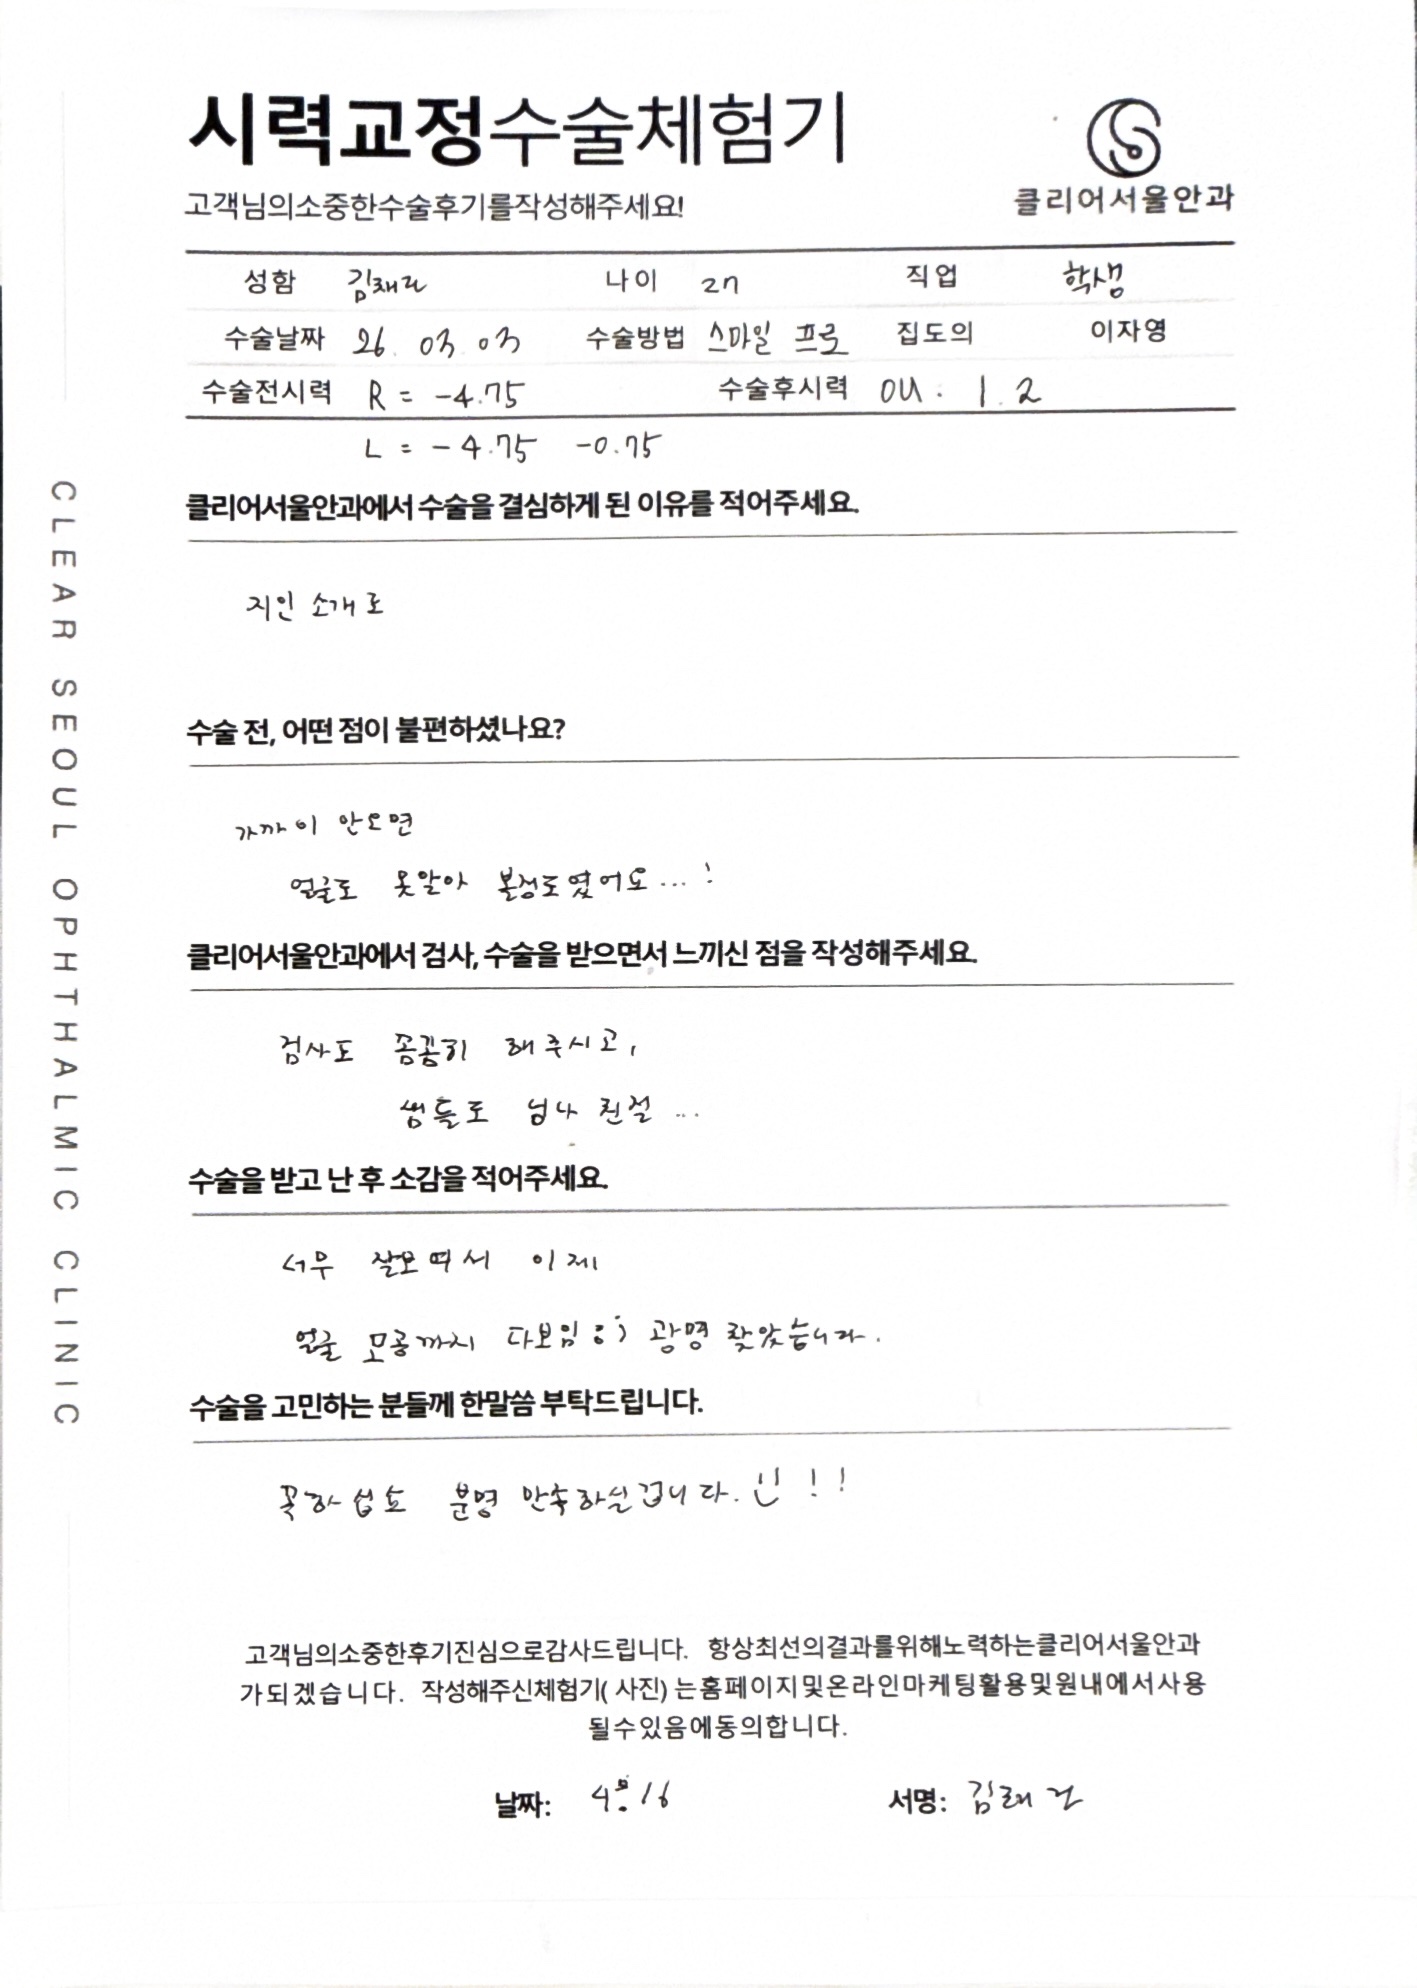 시력교정수술체험기
고객님의소중한수술후기를작성해주세요!
클리어서울안과
성함 나이 27 직업 학생
수술날짜 26. 03. 03 수술방법 스마일 프로 집도의 이자영
수술전시력 R = -4.75 수술후시력 OU. 1.2
L = -4.75 -0.75
클리어서울안과에서 수술을 결심하게 된 이유를 적어주세요.
지인 소개로
수술 전, 어떤 점이 불편하셨나요?
가까이 안오면
얼굴도 못알아 볼정도였어요...!
클리어서울안과에서 검사, 수술을 받으면서 느끼신 점을 작성해주세요.
검사도 꼼꼼히 해주시고,
쌤들도 넘나 친절...
수술을 받고 난 후 소감을 적어주세요.
너무 잘보여서 이제
얼굴 모공까지 다보임 광명 찾았습니다.
수술을 고민하는 분들께 한말씀 부탁드립니다.
꼭하십쇼 분명 만족하실겁니다. !!
고객님의소중한후기진심으로감사드립니다. 항상최선의결과를위해노력하는클리어서울안과
가되겠습니다. 작성해주신체험기( 사진) 는홈페이지및온라인마케팅활용및원내에서사용
될수있음에동의합니다.
날짜: 4월 16 서명:
CLEAR SEOUL OPHTHALMIC CLINIC